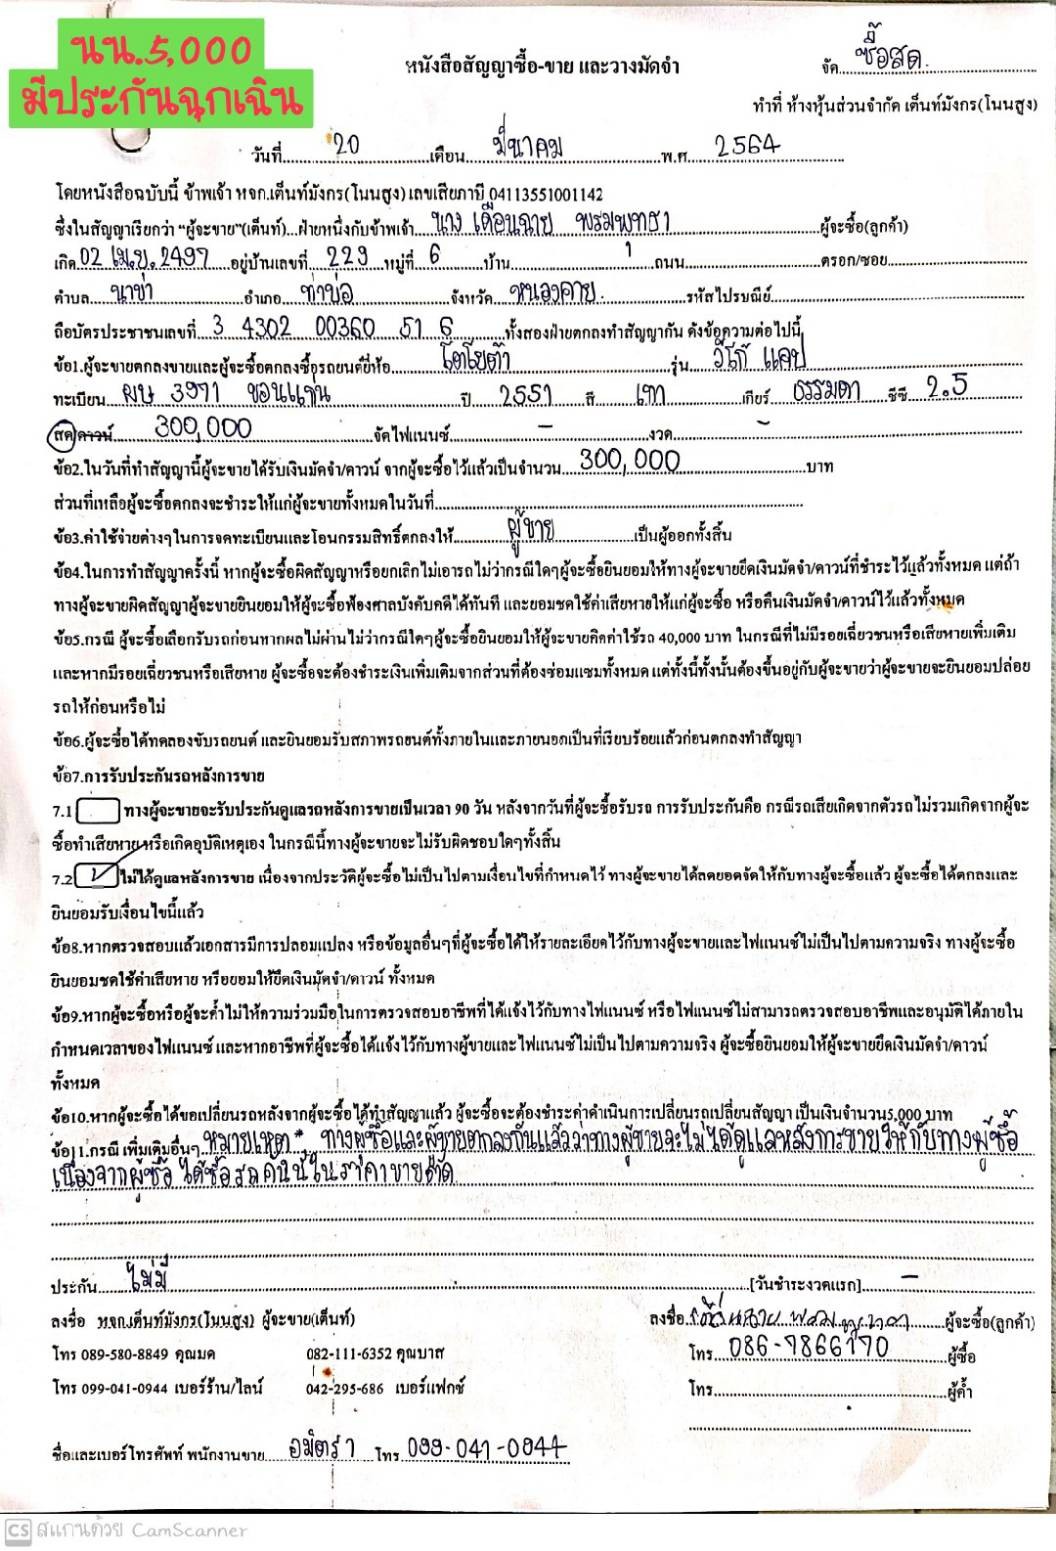 นน.5,000
มีประกันฉุกเฉิน
หนังสือสัญญาซื้อ-ขาย และวางมัดจำ
จัด ซื้อสด.
ทำที่ ห้างหุ้นส่วนจำกัด เต็นท์มังกร(โนนสูง)
วันที่ 20 เดือน มีนาคม พ.ศ 2564
โดยหนังสือฉบับนี้ ข้าพเจ้า หจก.เต็นท์มังกร(โนนสูง) เลขเสียภาษี 04113551001142
ซึ่งในสัญญาเรียกว่า "ผู้จะขาย"(เต็นท์)...ฝ่ายหนึ่งกับข้าพเจ้า นาง เดือนฉาย พรมพุทธา ผู้จะซื้อ(ลูกค้า)
เกิด 02 เม.ย. 2497 อยู่บ้านเลขที่ 229 หมู่ที่ 6 บ้าน ถนน ตรอก/ซอย
ตำบล นาข่า อำเภอ ท่าบ่อ จังหวัด หนองคาย. รหัสไปรษณีย์
ถือบัตรประชาชนเลขที่ 3 4302 00360 51 6 ทั้งสองฝ่ายตกลงทำสัญญากัน ดังข้อความต่อไปนี้
ข้อ1.ผู้จะขายตกลงขายและผู้จะซื้อตกลงซื้อรถยนต์ยี่ห้อ โตโยต้า รุ่น วีโก้ แคป
ทะเบียน ผษ 3971 ขอนแก่น ปี 2551 สี เทา เกียร์ ธรรมดา ซีซี 2.5
สด/ดาวน์ 300,000 จัดไฟแนนซ์ - งวด -
ข้อ2.ในวันที่ทำสัญญานี้ผู้จะขายได้รับเงินมัดจำ/ดาวน์ จากผู้จะซื้อไว้แล้วเป็นจำนวน 300,000 บาท
ส่วนที่เหลือผู้จะซื้อตกลงจะชำระให้แก่ผู้จะขายทั้งหมดในวันที่
ข้อ3.ค่าใช้จ่ายต่างๆในการจดทะเบียนและโอนกรรมสิทธิ์ตกลงให้ ผู้ขาย เป็นผู้ออกทั้งสิ้น
ข้อ4.ในการทำสัญญาครั้งนี้ หากผู้จะซื้อผิดสัญญาหรือยกเลิกไม่เอารถไม่ว่ากรณีใดๆผู้จะซื้อยินยอมให้ทางผู้จะขายยึดเงินมัดจำ/ดาวน์ที่ชำระไว้แล้วทั้งหมด แต่ถ้า
ทางผู้จะขายผิดสัญญาผู้จะขายยินยอมให้ผู้จะซื้อฟ้องศาลบังคับคดีได้ทันที และยอมชดใช้ค่าเสียหายให้แก่ผู้จะซื้อ หรือคืนเงินมัดจำ/ดาวน์ไว้แล้วทั้งหมด
ข้อ5.กรณี ผู้จะซื้อเลือกรับรถก่อนหากผลไม่ผ่านไม่ว่ากรณีใดๆผู้จะซื้อยินยอมให้ผู้จะขายคิดค่าใช้รถ 40,000 บาท ในกรณีที่ไม่มีรอยเฉี่ยวชนหรือเสียหายเพิ่มเติม
และหากมีรอยเฉี่ยวชนหรือเสียหาย ผู้จะซื้อจะต้องชำระเงินเพิ่มเติมจากส่วนที่ต้องซ่อมแซมทั้งหมด แต่ทั้งนี้ทั้งนั้นต้องขึ้นอยู่กับผู้จะขายว่าผู้จะขายจะยินยอมปล่อย
รถให้ก่อนหรือไม่
ข้อ6.ผู้จะซื้อได้ทดลองขับรถยนต์ และยินยอมรับสภาพรถยนต์ทั้งภายในและภายนอกเป็นที่เรียบร้อยแล้วก่อนตกลงทำสัญญา
ข้อ7.การรับประกันรถหลังการขาย
7.1 ทางผู้จะขายจะรับประกันดูแลรถหลังการขายเป็นเวลา 90 วัน หลังจากวันที่ผู้จะซื้อรับรถ การรับประกันคือ กรณีรถเสียเกิดจากตัวรถไม่รวมเกิดจากผู้จะ
ซื้อทำเสียหายหรือเกิดอุบัติเหตุเอง ในกรณีนี้ทางผู้จะขายจะไม่รับผิดชอบใดๆทั้งสิ้น
7.2 ไม่ได้ดูแลหลังการขาย เนื่องจากประวัติผู้จะซื้อไม่เป็นไปตามเงื่อนไขที่กำหนดไว้ ทางผู้จะขายได้ลดยอดจัดให้กับทางผู้จะซื้อแล้ว ผู้จะซื้อได้ตกลงและ
ยินยอมรับเงื่อนไขนี้แล้ว
ข้อ8.หากตรวจสอบแล้วเอกสารมีการปลอมแปลง หรือข้อมูลอื่นๆที่ผู้จะซื้อได้ให้รายละเอียดไว้กับทางผู้จะขายและไฟแนนซ์ไม่เป็นไปตามความจริง ทางผู้จะซื้อ
ยินยอมชดใช้ค่าเสียหาย หรือยอมให้ยึดเงินมัดจำ/ดาวน์ ทั้งหมด
ข้อ9.หากผู้จะซื้อหรือผู้จะค้ำไม่ให้ความร่วมมือในการตรวจสอบอาชีพที่ได้แจ้งไว้กับทางไฟแนนซ์ หรือไฟแนนซ์ไม่สามารถตรวจสอบอาชีพและอนุมัติได้ภายใน
กำหนดเวลาของไฟแนนซ์ และหากอาชีพที่ผู้จะซื้อได้แจ้งไว้กับทางผู้ขายและไฟแนนซ์ไม่เป็นไปตามความจริง ผู้จะซื้อยินยอมให้ผู้จะขายยึดเงินมัดจำ/ดาวน์
ทั้งหมด
ข้อ10.หากผู้จะซื้อได้ขอเปลี่ยนรถหลังจากผู้จะซื้อได้ทำสัญญาแล้ว ผู้จะซื้อจะต้องชำระค่าดำเนินการเปลี่ยนรถเปลี่ยนสัญญา เป็นเงินจำนวน5,000 บาท
ข้อ11.กรณี เพิ่มเติมอื่นๆ หมายเหตุ* ทางผู้ซื้อและผู้ขายตกลงกันแล้วว่าทางผู้ขายจะไม่ได้ดูแลหลังการขายให้กับทางผู้ซื้อ
เนื่องจากผู้ซื้อ ได้ซื้อรถคันนี้ในราคาขายตัด
ประกัน ไม่มี [วันชำระงวดแรก] -
ลงชื่อ หจก.เต็นท์มังกร(โนนสูง) ผู้จะขาย(เต็นท์) ลงชื่อ ผู้จะซื้อ(ลูกค้า)
โทร 089-580-8849 คุณมด 082-111-6352 คุณบาส โทร 086-9866170 ผู้ซื้อ
โทร 099-041-0944 เบอร์ร้าน/ไลน์ 042-295-686 เบอร์แฟกซ์ โทร ผู้ค้ำ
ชื่อและเบอร์โทรศัพท์ พนักงานขาย อมิตรา โทร 099-041-0944
CS สแกนด้วย CamScanner